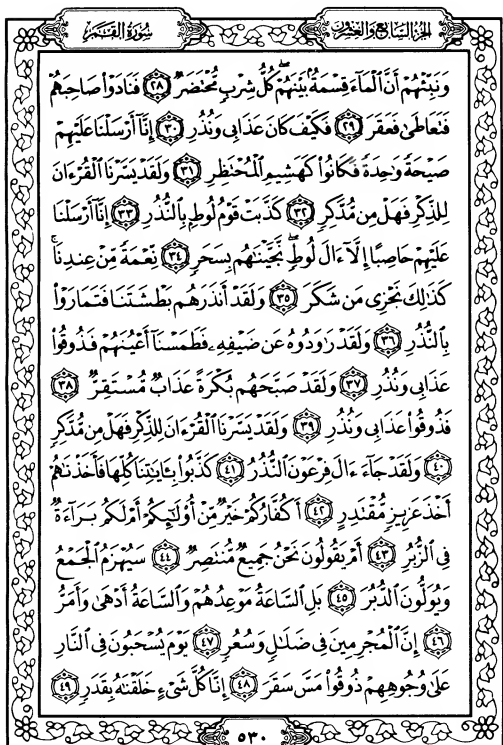 الجزء السابع والعشرون
سورة القمر
وَنَبِّئْهُمْ أَنَّ ٱلْمَآءَ قِسْمَةُۢ بَيْنَهُمْ ۖ كُلُّ شِرْبٍ مُّحْتَضَرٌ ۝٢٨ فَنَادَوْا۟ صَاحِبَهُمْ
فَتَعَاطَىٰ فَعَقَرَ ۝٢٩ فَكَيْفَ كَانَ عَذَابِى وَنُذُرِ ۝٣٠ إِنَّآ أَرْسَلْنَا عَلَيْهِمْ
صَيْحَةً وَٰحِدَةً فَكَانُوا۟ كَهَشِيمِ ٱلْمُحْتَظِرِ ۝٣١ وَلَقَدْ يَسَّرْنَا ٱلْقُرْءَانَ
لِلذِّكْرِ فَهَلْ مِن مُّدَّكِرٍ ۝٣٢ كَذَّبَتْ قَوْمُ لُوطٍۭ بِٱلنُّذُرِ ۝٣٣ إِنَّآ أَرْسَلْنَا
عَلَيْهِمْ حَاصِبًا إِلَّآ ءَالَ لُوطٍ ۖ نَّجَّيْنَٰهُم بِسَحَرٍ ۝٣٤ نِّعْمَةً مِّنْ عِندِنَا ۚ
كَذَٰلِكَ نَجْزِى مَن شَكَرَ ۝٣٥ وَلَقَدْ أَنذَرَهُم بَطْشَتَنَا فَتَمَارَوْا۟
بِٱلنُّذُرِ ۝٣٦ وَلَقَدْ رَٰوَدُوهُ عَن ضَيْفِهِۦ فَطَمَسْنَآ أَعْيُنَهُمْ فَذُوقُوا۟
عَذَابِى وَنُذُرِ ۝٣٧ وَلَقَدْ صَبَّحَهُم بُكْرَةً عَذَابٌ مُّسْتَقِرٌّ ۝٣٨
فَذُوقُوا۟ عَذَابِى وَنُذُرِ ۝٣٩ وَلَقَدْ يَسَّرْنَا ٱلْقُرْءَانَ لِلذِّكْرِ فَهَلْ مِن مُّدَّكِرٍ
۝٤٠ وَلَقَدْ جَآءَ ءَالَ فِرْعَوْنَ ٱلنُّذُرُ ۝٤١ كَذَّبُوا۟ بِـَٔايَٰتِنَا كُلِّهَا فَأَخَذْنَٰهُمْ
أَخْذَ عَزِيزٍ مُّقْتَدِرٍ ۝٤٢ أَكُفَّارُكُمْ خَيْرٌ مِّنْ أُو۟لَٰٓئِكُمْ أَمْ لَكُم بَرَآءَةٌ
فِى ٱلزُّبُرِ ۝٤٣ أَمْ يَقُولُونَ نَحْنُ جَمِيعٌ مُّنتَصِرٌ ۝٤٤ سَيُهْزَمُ ٱلْجَمْعُ
وَيُوَلُّونَ ٱلدُّبُرَ ۝٤٥ بَلِ ٱلسَّاعَةُ مَوْعِدُهُمْ وَٱلسَّاعَةُ أَدْهَىٰ وَأَمَرُّ
۝٤٦ إِنَّ ٱلْمُجْرِمِينَ فِى ضَلَٰلٍ وَسُعُرٍ ۝٤٧ يَوْمَ يُسْحَبُونَ فِى ٱلنَّارِ
عَلَىٰ وُجُوهِهِمْ ذُوقُوا۟ مَسَّ سَقَرَ ۝٤٨ إِنَّا كُلَّ شَىْءٍ خَلَقْنَٰهُ بِقَدَرٍ ۝٤٩
٥٣٠